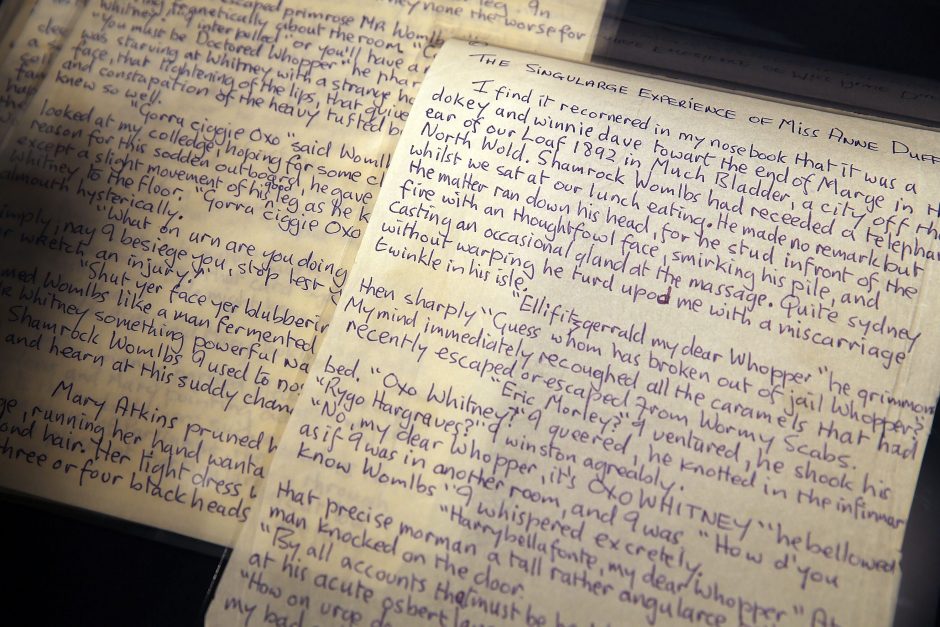 escaped primrose Mr Womlbs
frenetically about the room
interpulled" or you'll have a
"You must be Doctored Whopper" he
was starving at Whitney with a strange
face, that tightening of the lips, that
and, the constapation of the heavy tufted
knew so well.
"Gorra ciggie Oxo" said Womlbs
looked at my colledge, hoping for some
reason for this sodden outboard, he gave
except a slight movement of his good leg as he
Whitney to the floor. "Gorra ciggie Oxo
almouth hysterically.
"What on urn are you doing
imply, nay I besiege you, stop
wretch an injury!"
"Shut yer face yer blubbering
Womlbs like a man fermented
Whitney something powerful
Shamrock Womlbs I used to
and hearn at this suddy
Mary Atkins pruned
running her hand
hair. Her tight dress
three or four blackheads
leg. In
they none the worse for
THE SINGULARGE EXPERIENCE OF MISS ANNE DUFF
I find it recornered in my nosebook that it was a
dokey and winnie dave towart the end of Marge in
ear of our Loaf 1892 in Much Bladder, a city off the
North Wold. Shamrock Womlbs had receeded a
whilst we sat at our lunch eating. He made no remark but
the matter ran down his head, for he stud infront of the
fire with an thoughtfowl face, smirking his pile, and
Casting an occasional gland at the massage. Quite sydney
without warping he turd upod me with a miscarriage
twinkle in his isle.
"Ellifitzgerrald my dear Whopper" he grimmond
then sharply "Guess whom has broken out of jail Whopper?"
My mind immediately recoughed all the caramels that had
recently escaped or escaped from Wormy Scabs.
"Eric Morley?" I ventured, he shook his
bed. "Oxo Whitney?" I queered, he knotted in the infirmary
"Rygo Hargraves?" I winston agreably.
"No, my dear Whopper, it's OXO WHITNEY" he bellowed
as if I was in another room, and I was "How d'you
know Womlbs" I whispered excretely.
"Harrybellafonte, my dear Whopper" At
that precise morman a tall rather angularge
man knocked on the door.
"By all accounts that must be
at his acute osbert
"How on urge
my bad